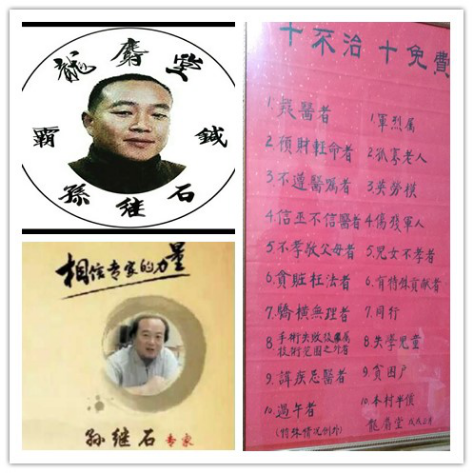 龍
堂
霸 鍼
孫继石
相信专家的力量
孙继石 专家
十不治 十免費
1. 醫者 1. 軍烈属
2. 財輕命者 2. 孤寡老人
3. 不遵醫嘱者 3. 英勞模
4. 信巫不信醫者 4. 傷殘軍人
5. 不孝敬父母者 5. 兒女不孝者
6. 貪賍枉法者 6. 有特殊貢献者
7. 驕橫無理者 7. 同行
8. 手術失敗後 属 8. 失學兒童
技術范圍之外者
9. 諱疾忌醫者 9. 貧困户
10. 過午者 10. 本村半價
(特殊情況例外) 龍 堂